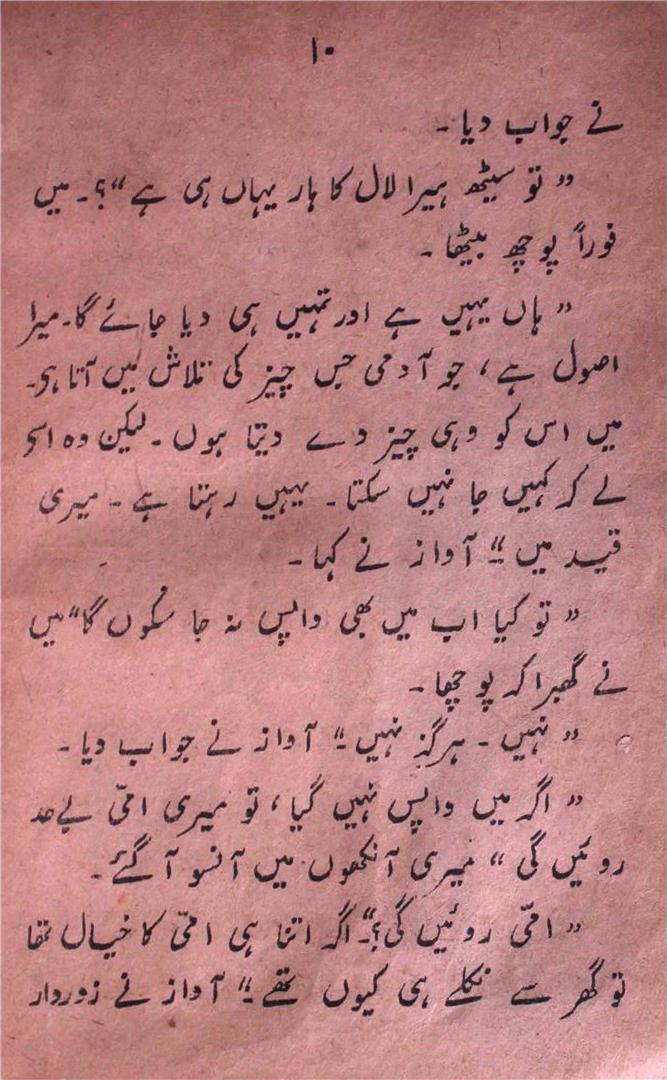 ۱۰
نے جواب دیا۔
” تو سیٹھ ہیرا لال کا ہار یہاں ہی ہے “؟۔ میں
فوراً پوچھ بیٹھا۔
” ہاں یہیں ہے اور تمہیں ہی دیا جائے گا۔ میرا
اصول ہے، جو آدمی جس چیز کی تلاش میں آتا ہو۔
میں اس کو وہی چیز دے دیتا ہوں۔ لیکن وہ اسے
لے کر کہیں جا نہیں سکتا۔ یہیں رہتا ہے۔ میری
قید میں “ آواز نے کہا۔
” تو کیا اب میں بھی واپس نہ جا سکوں گا “ میں
نے گھبرا کر پوچھا۔
” نہیں۔ ہرگز نہیں “ آواز نے جواب دیا۔
” اگر میں واپس نہیں گیا، تو میری امّی بے حد
روئیں گی “ میری آنکھوں میں آنسو آ گئے۔
” امّی روئیں گی؟“۔ اگر اتنا ہی امّی کا خیال تھا
تو گھر سے نکلے ہی کیوں تھے “ آواز نے زوردار